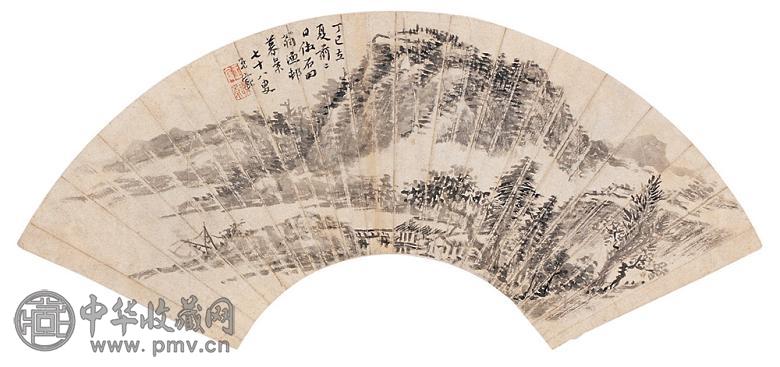 丁巳立
夏前二
日仿石田
翁漁邨
暮景
七十八叟
中华收藏网
www.pmv.cn